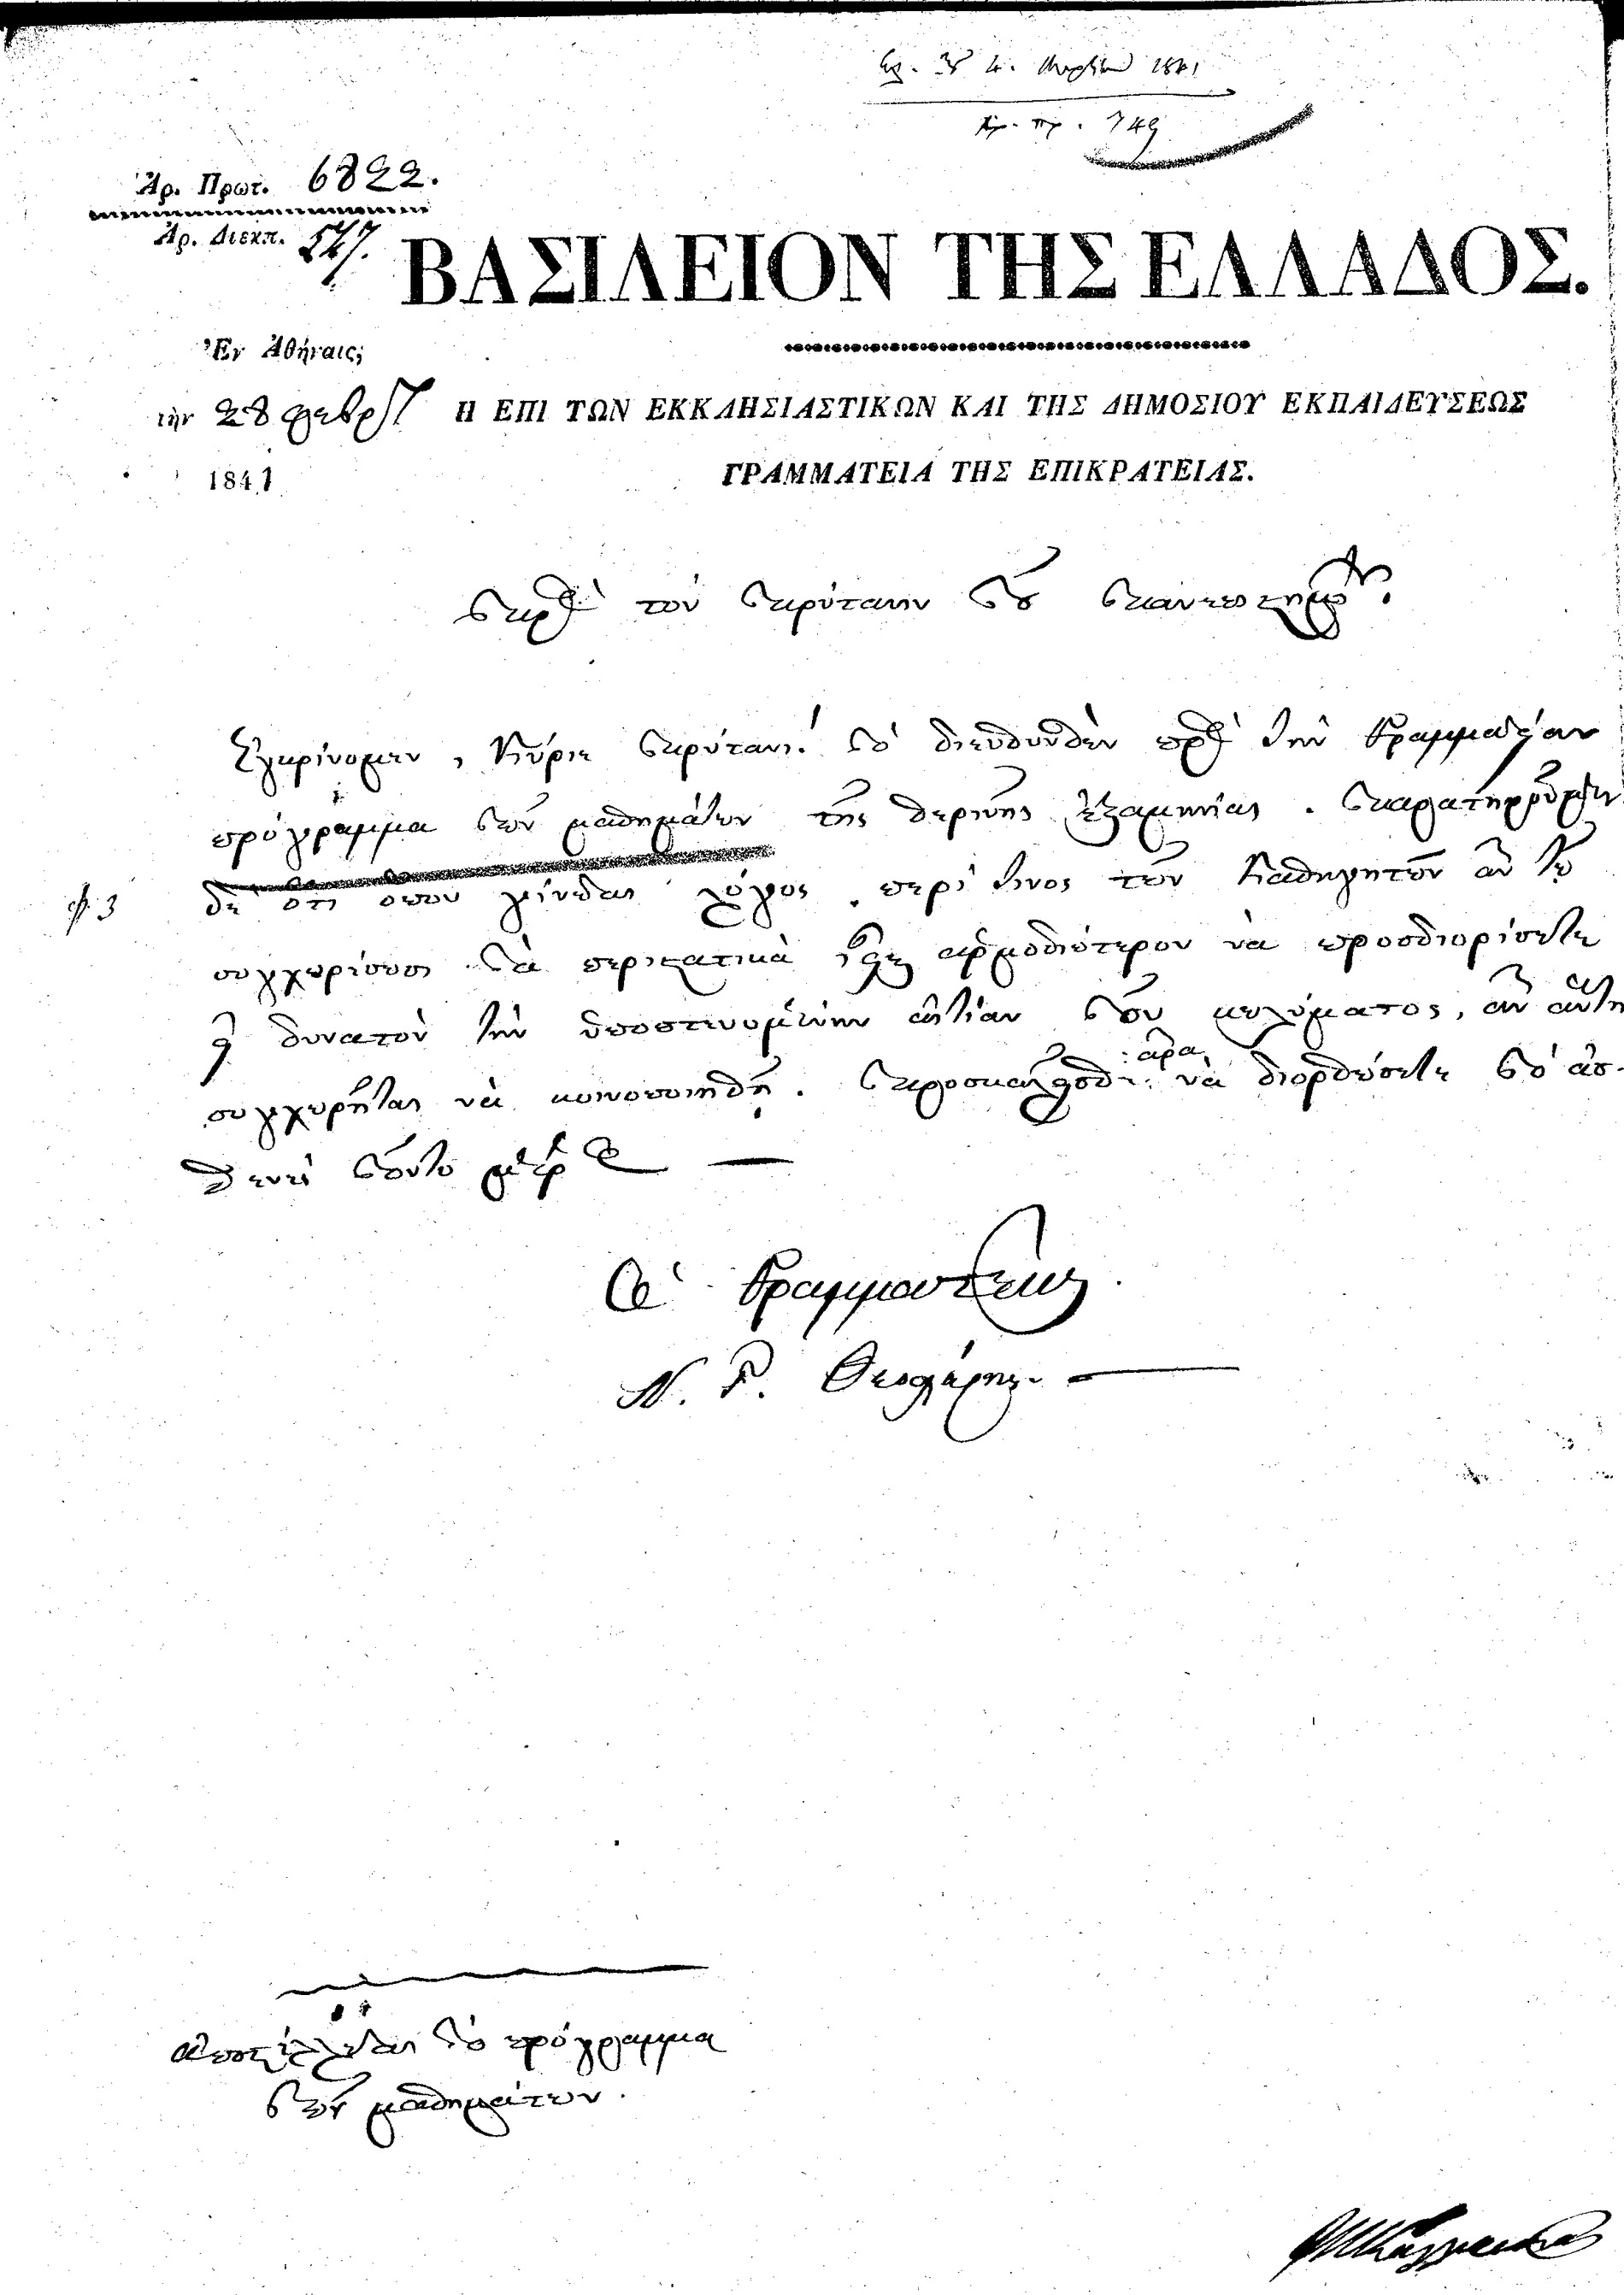 Ἐλ. τῇ 4. Μαρτίου 1841
Ἀρ. πρ. 749
Ἀρ. Πρωτ. 6822.
Ἀρ. Διεκπ. 547.
ΒΑΣΙΛΕΙΟΝ ΤΗΣ ΕΛΛΑΔΟΣ.
Ἐν Ἀθήναις,
τὴν 28 φεβρ
1841
Η ΕΠΙ ΤΩΝ ΕΚΚΛΗΣΙΑΣΤΙΚΩΝ ΚΑΙ ΤΗΣ ΔΗΜΟΣΙΟΥ ΕΚΠΑΙΔΕΥΣΕΩΣ
ΓΡΑΜΜΑΤΕΙΑ ΤΗΣ ΕΠΙΚΡΑΤΕΙΑΣ.
Πρὸς τὸν Πρύτανιν τοῦ Πανεπιστημίου.
Ἐγκρίνομεν, Κύριε Πρύτανι! τὸ διευθυνθὲν πρὸς τὴν Γραμματείαν
πρόγραμμα τῶν μαθημάτων τῆς θερινῆς ἑξαμηνίας. Παρατηροῦμεν
φ. 3
δὲ ὅτι ὅπου γίνεται λόγος περί τινος τῶν Καθηγητῶν ἂν τῷ
συγχωρήσωσι τὰ περιστατικὰ ἦτο ἁρμοδιώτερον νὰ προσδιορίσητε
εἰ δυνατὸν τὴν ὑποτεινομένην αἰτίαν τοῦ κωλύματος, ἂν αὕτη
συγχωρῆται νὰ κοινοποιηθῇ. Προσκαλεῖσθε ἄρα νὰ διορθώσητε τὸ ἀσ-
θενὲς τοῦτο μέρος
Ὁ Γραμματεὺς
Ν. Γ. Θεοχάρης
Ἀποστέλλεται τὸ πρόγραμμα
τῶν μαθημάτων.